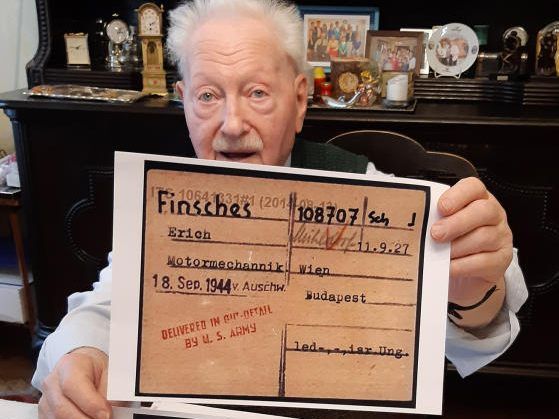 ITS 10641331#1 (201
Finsches 108707 Sch J
Erich Mühldorf 11.9.27
Motormechannik Wien
18. Sep. 1944 v. Auschw. Budapest
DELIVERED IN OUT-DETAIL
BY U. S. ARMY
led-,-,isr.Ung.